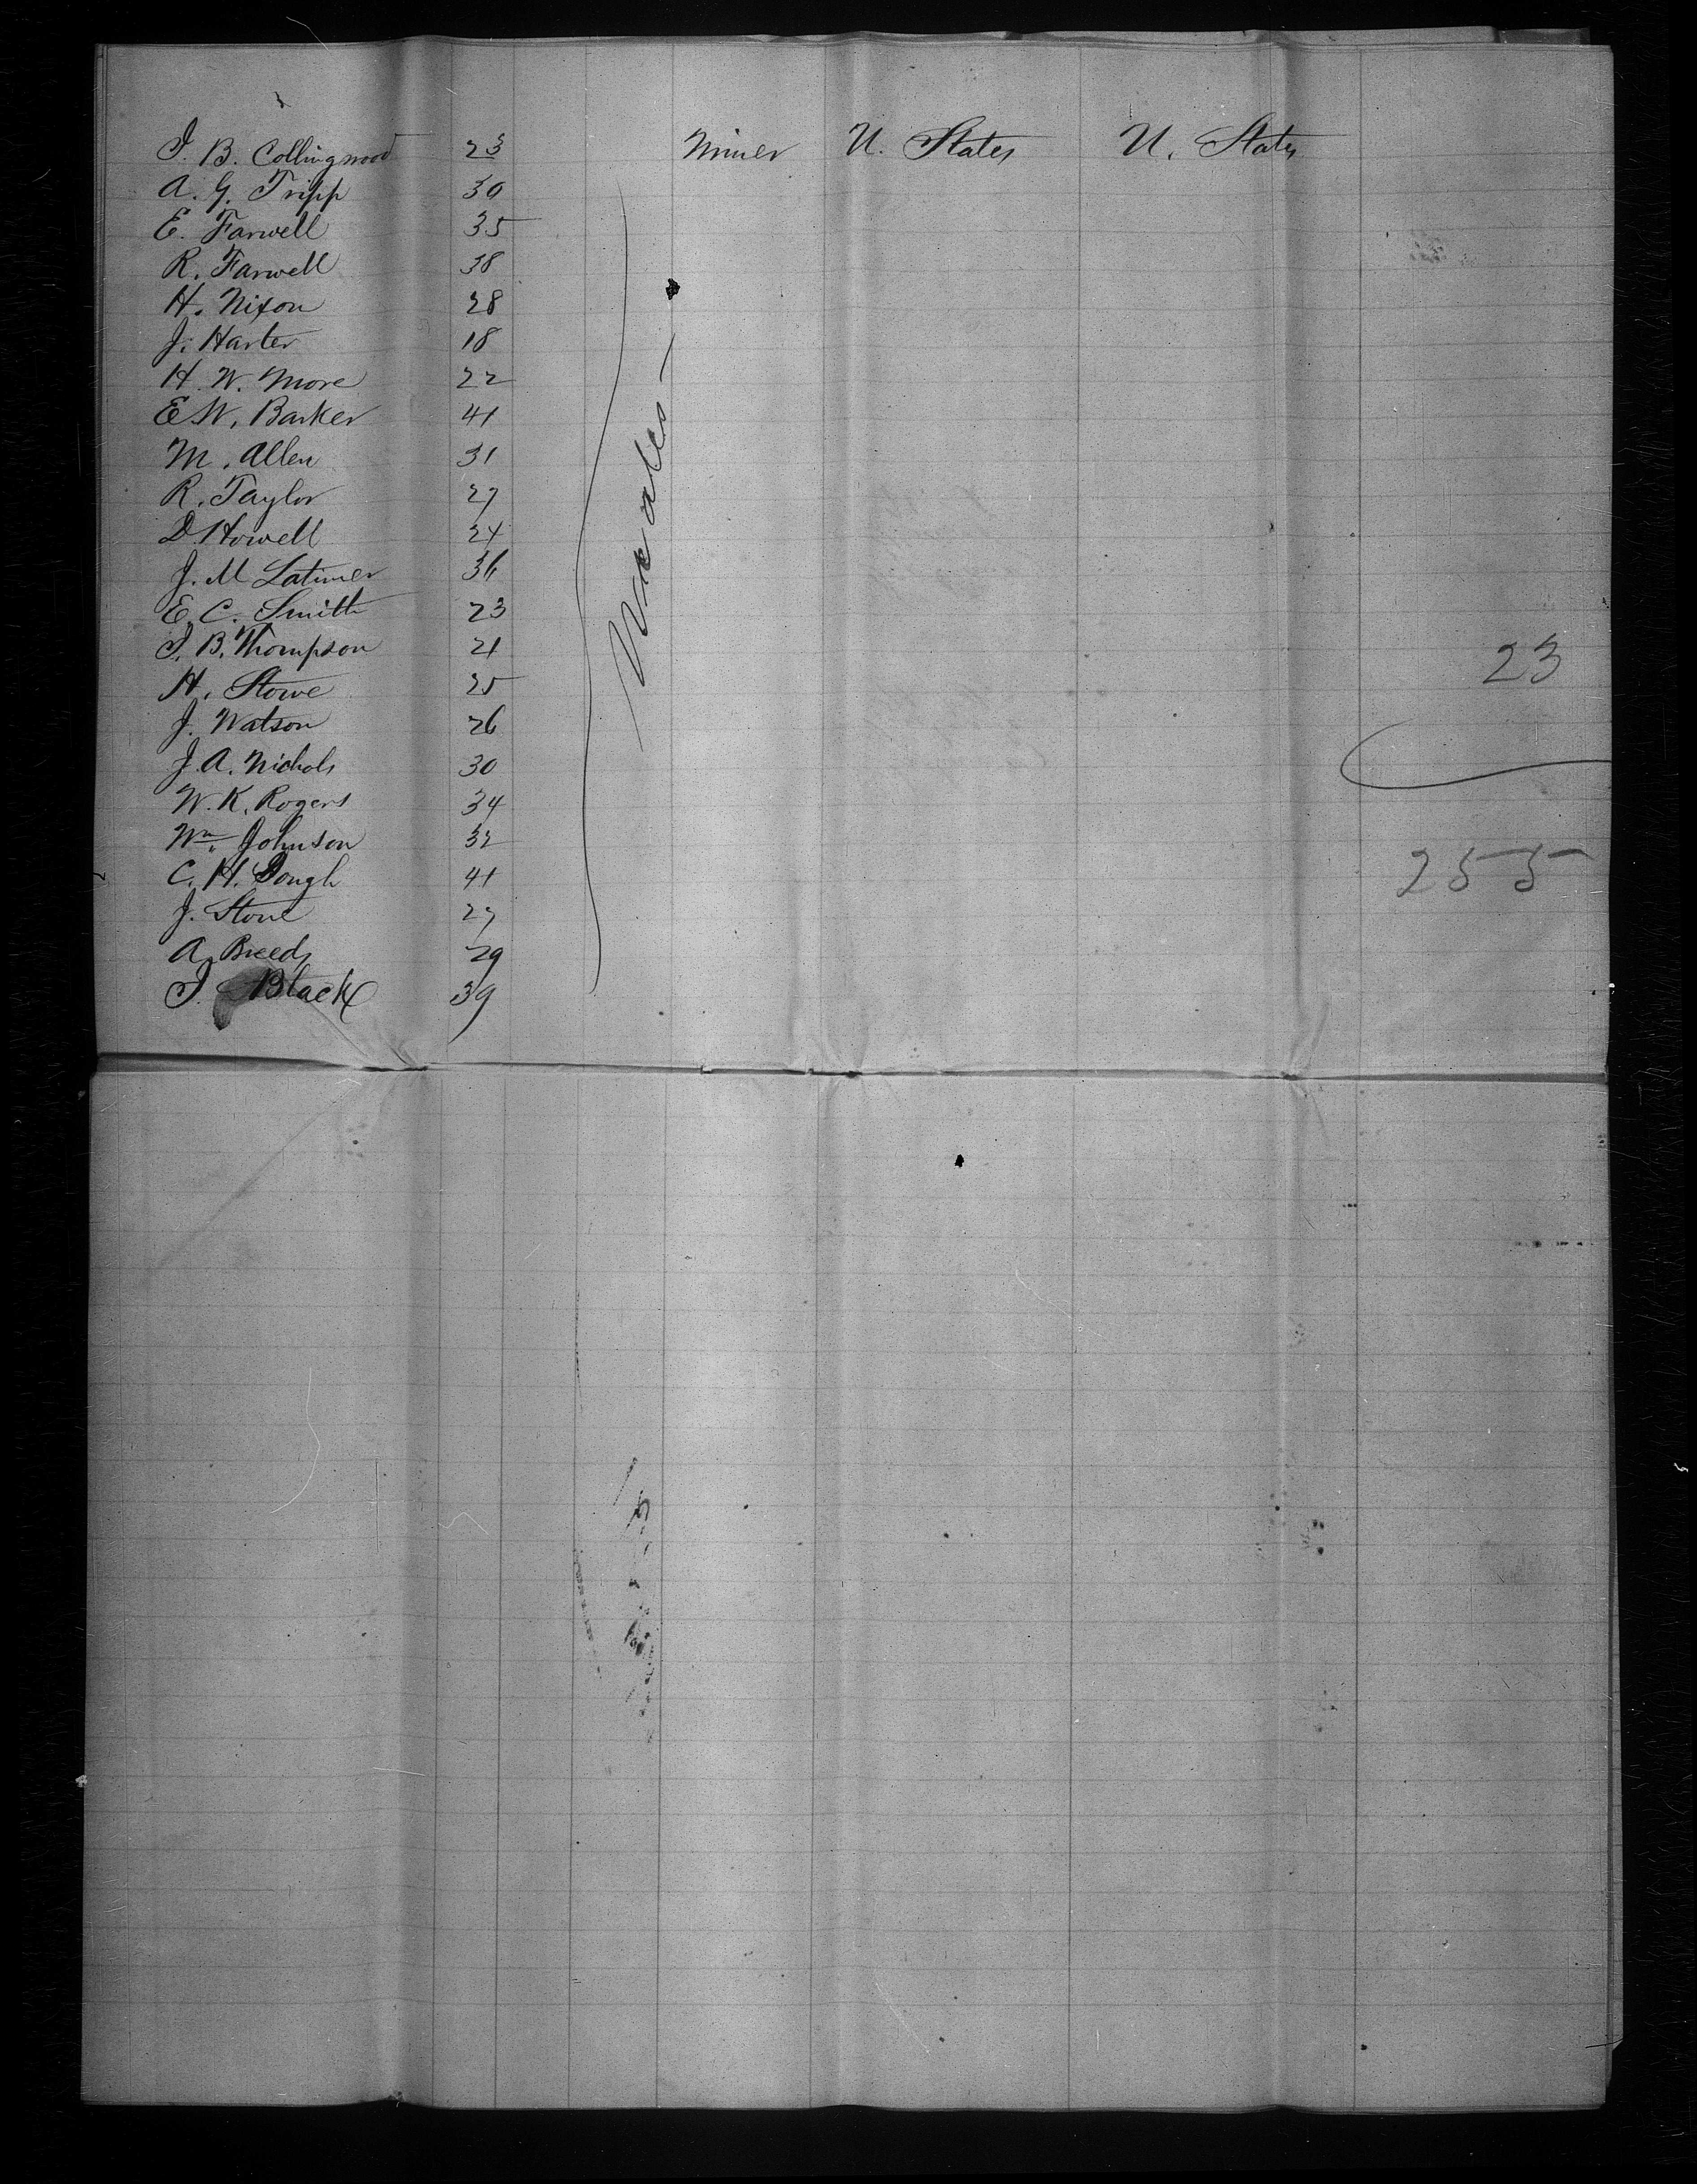 I. B. Collingwood 23 Miner U. States U. States
A. G. Tripp 30
E. Farwell 35
R. Farwell 38
H. Nixon 28
J. Harter 18
H. W. More 22
E W. Barker 41
M. Allen 31
R. Taylor 27
D. Howell 24
J. M Latimer 36
E. C. Smith 23
I. B. Thompson 21
H. Stowe 25
J. Watson 26
J. A. Nichols 30
W. K. Rogers 34
Wm. Johnson 32
C. H. Gough 41
J. Stone 27
A. Breeds 29
I. Black 39
Males
23
255